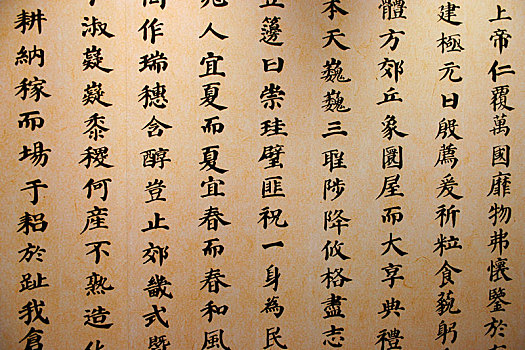 上帝仁覆萬國靡物弗懷鑒於
建極元日殷薦爰祈粒食藐躬
體方郊丘象圜屋而大享典禮
本天巍巍三聖陟降攸格盡志
籩曰崇珪璧匪祝一身為民
人宜夏而夏宜春而春和風
作瑞穗含醇豈止郊畿式
淑嶷嶷黍稷何産不熟造化
耕納稼而場于耜於趾我倉